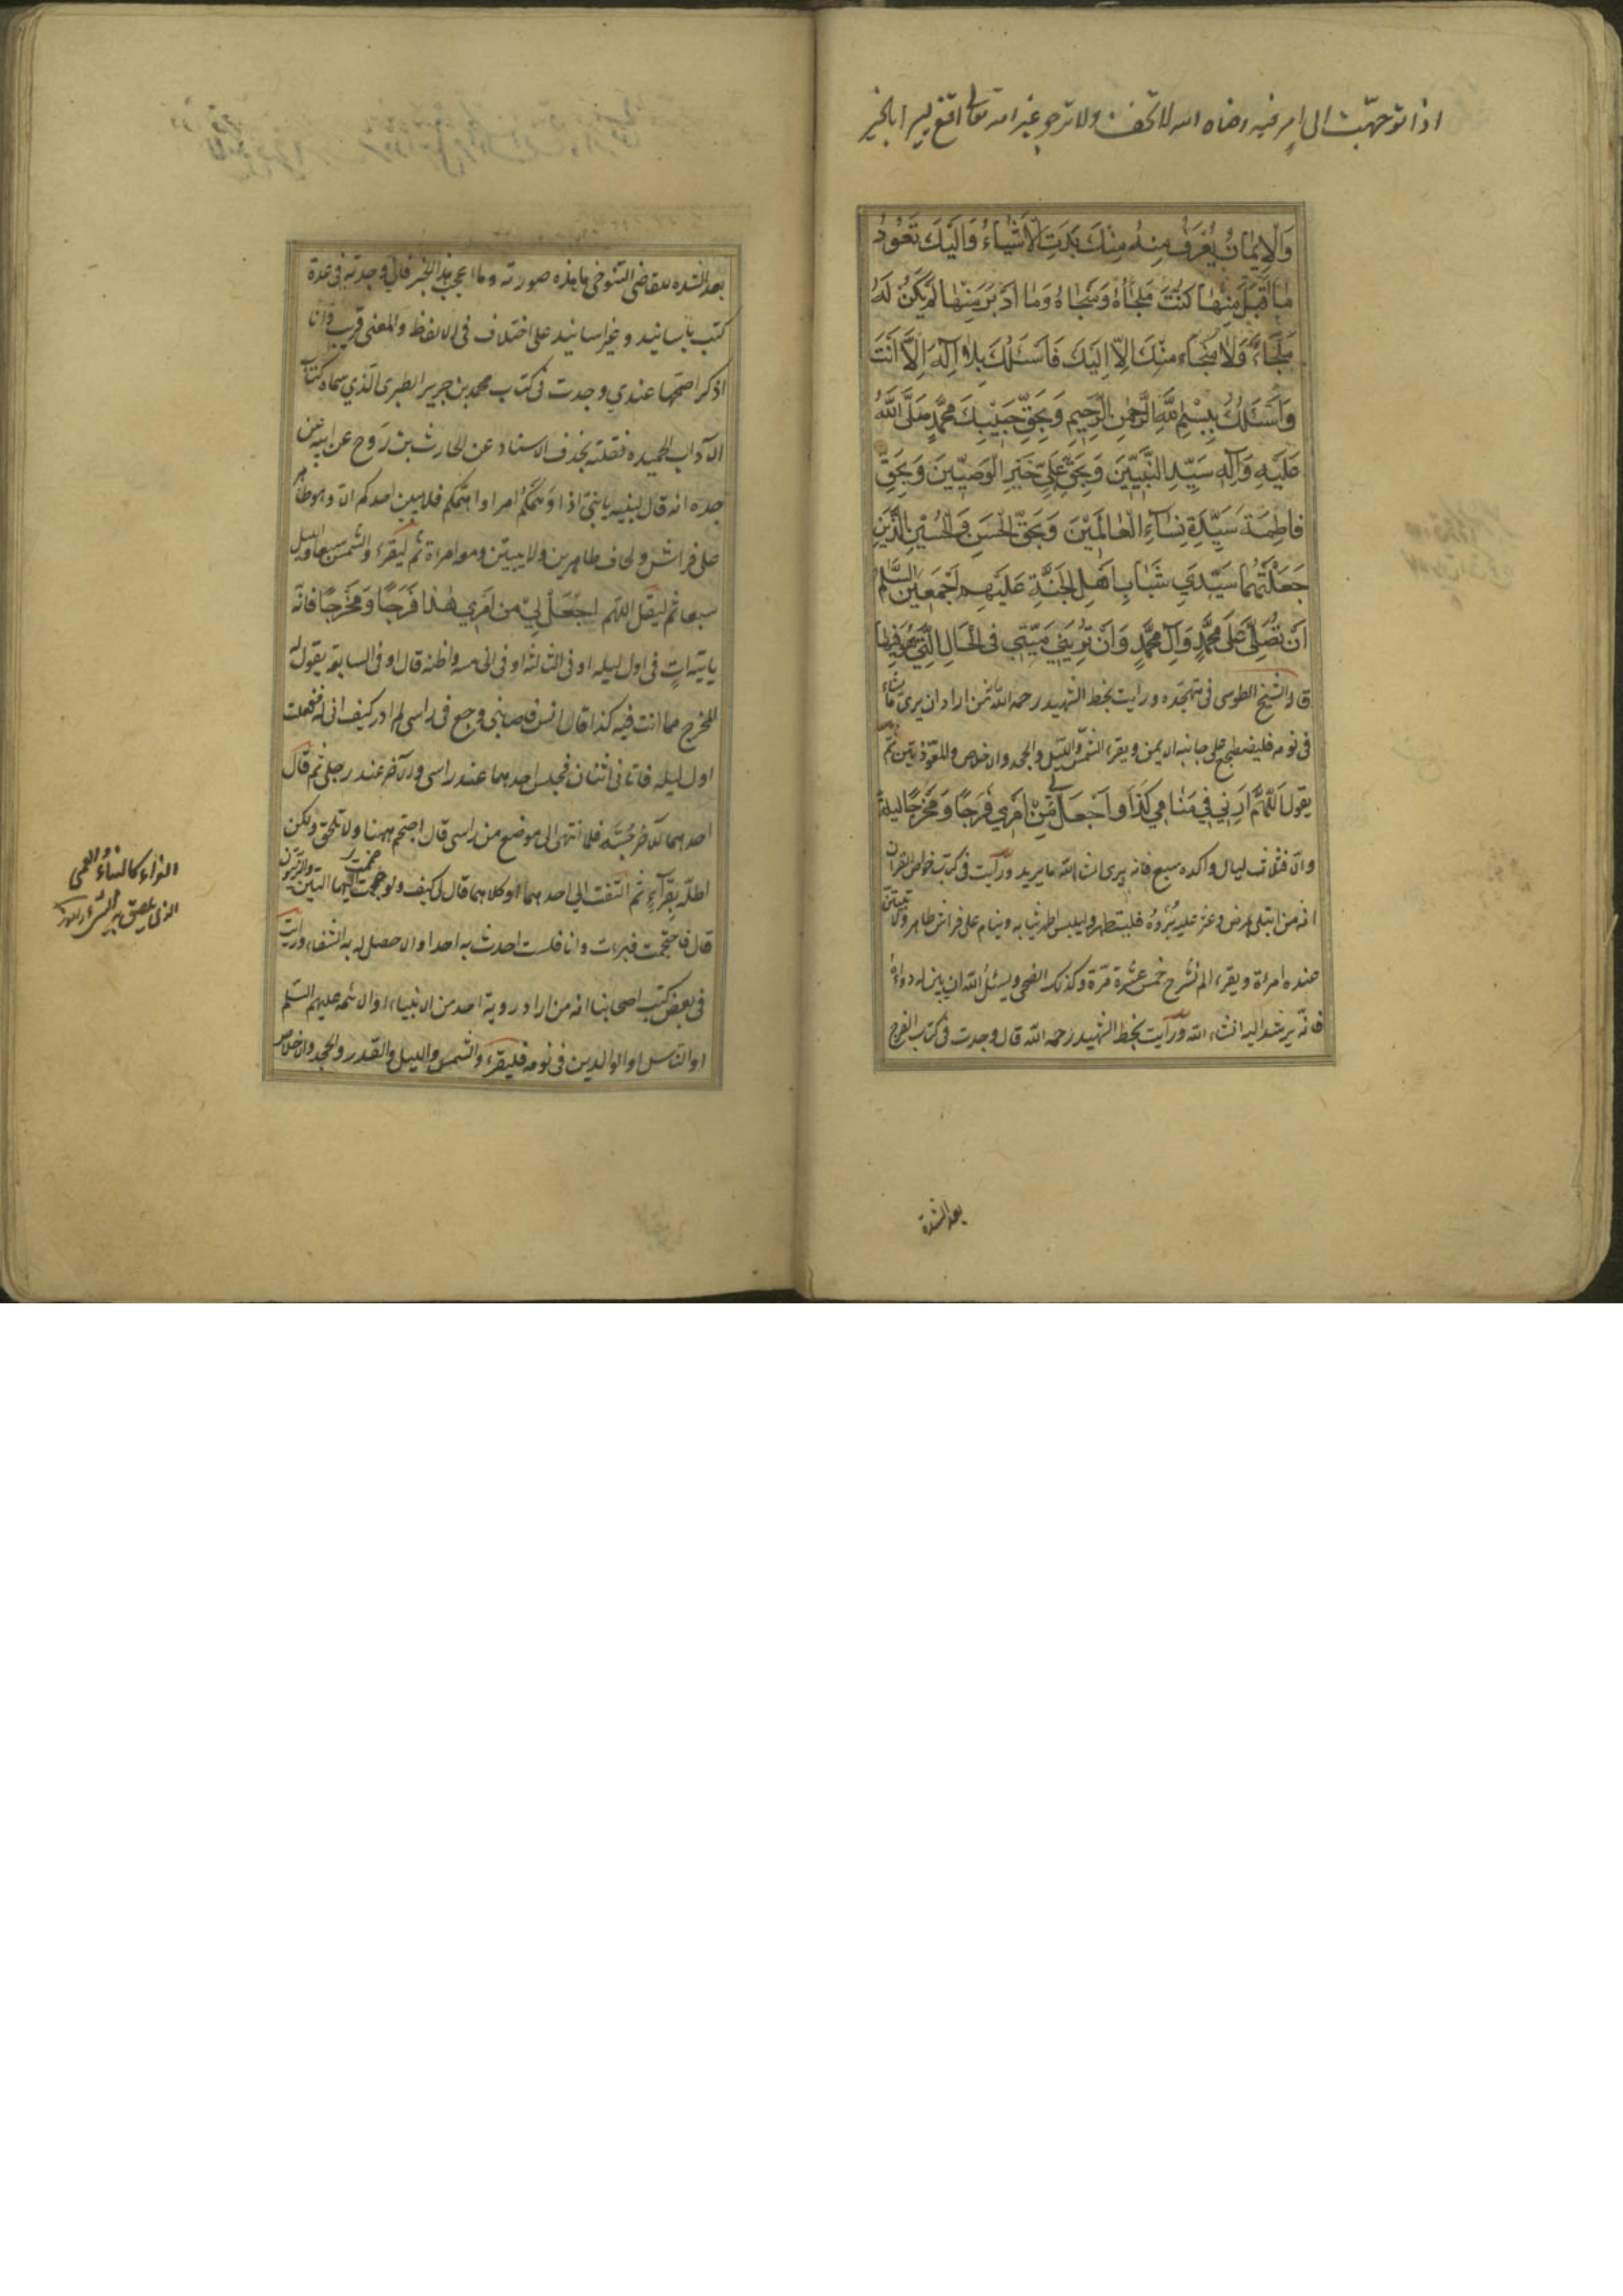 اذا توجهت الى امر فيه رضاه الله لا تخف ولا ترجو غير الله تعالى اقنع يسيرا بالخير
وَالْاِيمَانُ يُعْرَفُ مِنْهُ مِنْكَ بَدَتِ الْاَشْيَاءُ وَاِلَيْكَ تَعُودُ
مَا اَقْبَلَ مِنْهَا كُنْتَ مَلْجَأَهُ وَمَنْجَاهُ وَمَا اَدْبَرَ مِنْهَا لَمْ يَكُنْ لَهُ
مَلْجَاءٌ وَلَا مَنْجَاء مِنْكَ اِلَّا اِلَيْكَ فَاَسْئَلُكَ بِلَا اِلٰهَ اِلَّا اَنْتَ
وَاَسْئَلُكَ بِبِسْمِ اللهِ الرَّحْمٰنِ الرَّحِيمِ وَبِحَقِّ حَبِيْبِكَ مُحَمَّدٍ صَلَّى اللهُ
عَلَيْهِ وَآلِهِ سَيِّدِ النَّبِيِّينَ وَبِحَقِّ عَلِيٍّ خَيْرِ الْوَصِيِّينَ وَبِحَقِّ
فَاطِمَةَ سَيِّدَةِ نِسَآءِ الْعَالَمِيْنَ وَبِحَقِّ الْحَسَنِ وَالْحُسَيْنِ الَّذَيْنِ
جَعَلْتَهُمَا سَيِّدَيْ شَبَابِ اَهْلِ الْجَنَّةِ عَلَيْهِم اَجْمَعِينَ السَّلَمُ
اَنْ تُصَلِّيَ عَلَى مُحَمَّدٍ وَآلِ مُحَمَّدٍ وَاَنْ تُرِيَنِي مَيِّتِي فِى الْحَالِ الَّتِي هُوَ فِيهَا
قال الشيخ الطوسى فى متهجده ورايت بخط الشهيد رحمه الله من اراد ان يرى ما يشاء
فى نومه فليضطجع على جانبه الايمن ويقرء الشمس والليل والجحد والاخلاص والمعوذتين ثم
يقول اَللّٰهُمَّ اَرِنِي فِي مَنَامِي كَذَا وَاجْعَلْ لِي مِنْ اَمْرِي فَرَجًا وَمَخْرَجًا ليلة
والا فثلاث ليال واكده سبع فانه يرى انشاء الله ما يريد ورأيت فى كتب خواص القرآن
انه من ابتلى بمرض وعز عليه بُرْؤُهُ فليتطهر وليلبس اطهر ثيابه وينام على فراش طاهر ولا تبيتن
عنده امرأة ويقرء الم نشرح خمس عشرة مرّة وكذلك الضحى ويسئل الله ان يبين له دواءه
فانّه يرشد اليه انشاء الله ورأيت بخط الشهيد رحمه الله قال وجدت فى كتاب الفرج
بعد الشدة
بعد الشده للقاضى التنوخى ما هذه صورته وما اعجب هذا الخبر فانى وجدته فى عدة
كتب باسانيد وغير اسانيد على اختلاف فى الالفاظ والمعنى قريب وانا
اذكر اصحها عندي وجدت فى كتاب محمد بن جرير الطبرى الّذي سماه كتاب
الآداب الحميده فنقلته بحذف الاسناد عن الحارث بن رَوح عن ابيه عن
جده انه قال لبنيه يا بنيّ اذا دهمكم امرا او اهمّكم فلا يبيتن احدكم الا وهو طاهر
على فراش ولحاف طاهرين ولا يبيتن ومعه امراة ثم ليقرء والشمس سبعا والليل
سبعا ثم ليقل اللهم اجْعَلْ لِيْ مِنْ اَمْرِي هٰذَا فَرَجًا وَمَخْرَجًا فانّه
ياتيه اٰتٍ فى اول ليله او فى الثالثه او فى الخامسه واظنه قال او فى السابعة يقول له
المخرج مما انت فيه كذا قال انس فاصابنى وجع فى راسى لم ادر كيف اتى له ففعلت
اول ليله فاتانى اثنان فجلس احدهما عند راسى والآخر عند رجلى ثم قال
احدهما للآخر جُسَّه فلما انتهى الى موضع من راسى قال احتجم ههنا ولا تحلق ولكن
اطله بغراءٍ ثم التفت الي احدهما او كلاهما قال لى كيف ولو ضممت اليهما التين والزيتون
قال فاحتجمت فبرءت وانا فلست احدث به احدا الا حصل له به الشفاء ورايت
فى بعض كتب اصحابنا انه من اراد روية احد من الانبياء او الائمه عليهم السّلم
او الناس او الوالدين فى نومه فليقرء والشمس والليل والقدر والجحد والاخلاص
الغراء كالنساء
الذى يلصق به